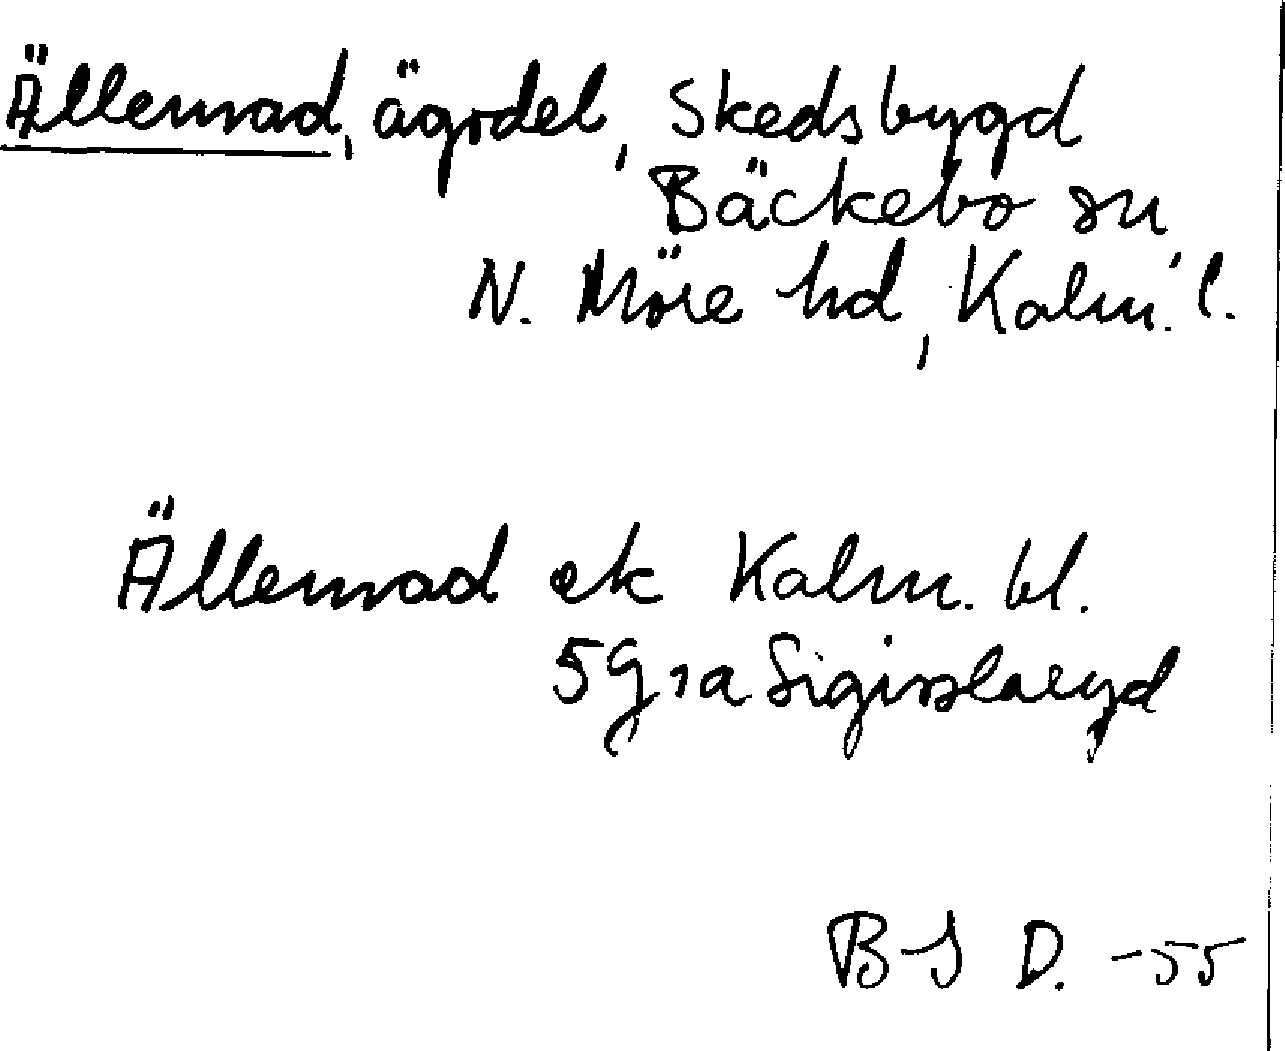 Ällemad, ägodel, Skedsbygd
Bäckebo sn
N. Möre hd, Kalm. l.
Ällemad ek Kalm. bl.
5 G 1a
BJ D. -55